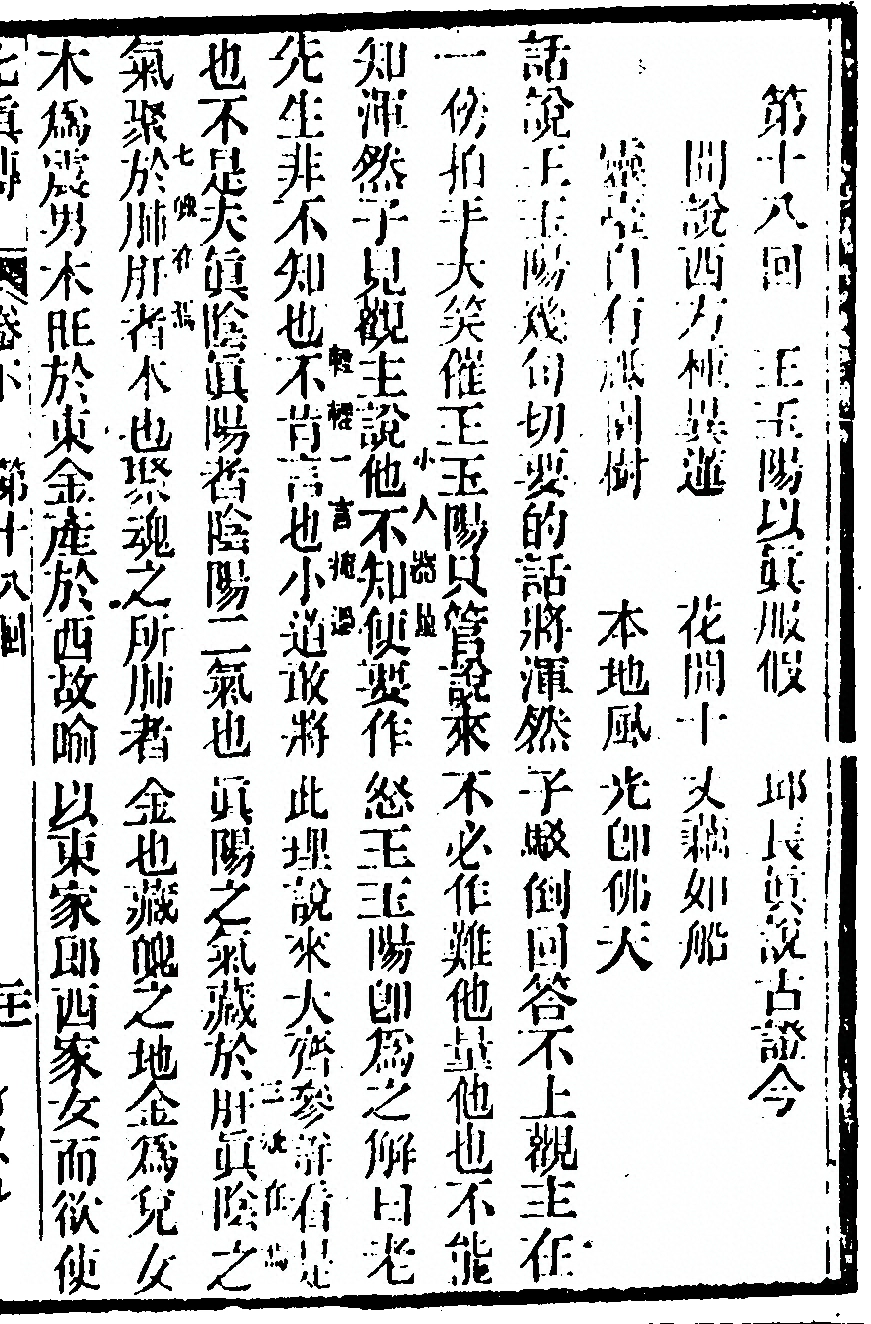 第十八回 王玉陽以眞服假 邱長眞說古證今
聞說西方種異蓮 花開十丈藕如船
靈臺自有祇園樹 本地風光卽佛天
話說王玉陽幾句切要的話將渾然子駁倒回答不上觀主在
一傍拍手大笑催王玉陽只管說來不必作難他量他也不能
知渾然子見觀主說他不知便要作怒王玉陽卽爲之解曰老
小人器量
先生非不知也不肯言也小道敢將此理說來大齊參詳看是
輕輕一言掩過
也不是夫眞陰眞陽者陰陽二氣也眞陽之氣藏於肝眞陰之
三魂在焉
氣聚於肺肝者木也聚魂之所肺者金也藏魄之地金爲兌女
七魄在焉
木爲震男木旺於東金產於西故喻以東家郎西家女而欲使
七眞傳 卷下 第十八回